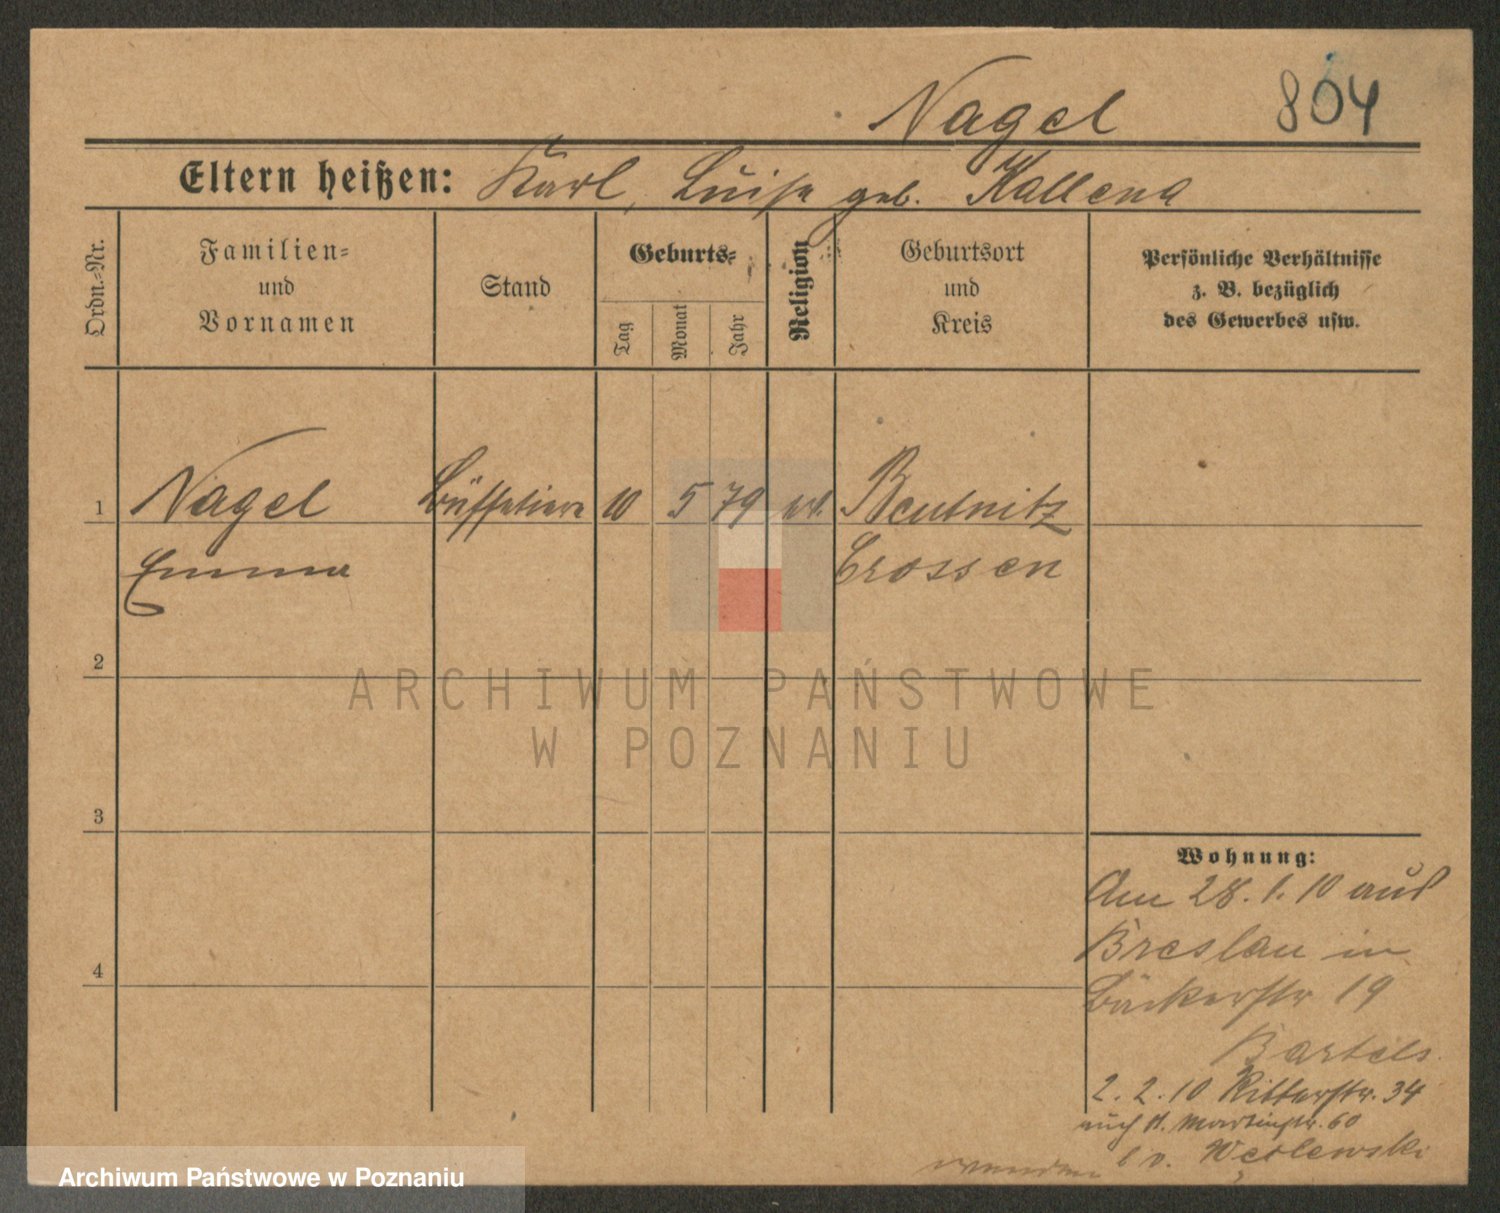 Nagel 804
Eltern heißen: Karl, Luise geb. Kallena
Ordn.-Nr.
Familien=
und
Vornamen
Stand
Geburts=
Tag
Monat
Jahr
Religion
Geburtsort
und
Kreis
Persönliche Verhältnisse
z. B. bezüglich
des Gewerbes usw.
1 Nagel Büffetiere 10 5 79 ev. Beutnitz
Emma Crossen
2
3
4
ARCHIWUM PAŃSTWOWE
W POZNANIU
Wohnung:
Am 28.1.10 aus
Breslau in
Bäckerstr 19
Bartels.
2.2.10 Ritterstr. 34
auch St. Martinstr. 60
b v. Węclewski
wenden
Archiwum Państwowe w Poznaniu